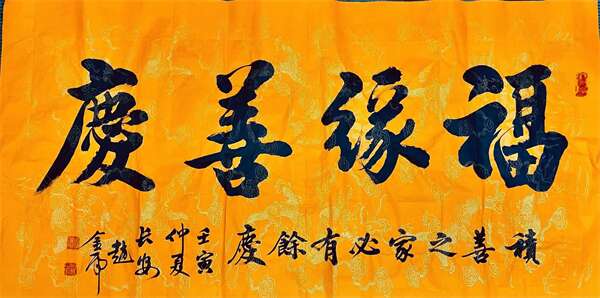 福緣善慶
積善之家必有餘慶
壬寅
仲夏
长安
趙
金